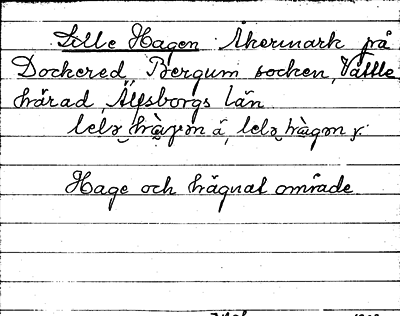 Lille Hagen Åkermark på
Dockered, Bergum socken, Vättle
härad, Älfsborgs län
Hage och hägnat område